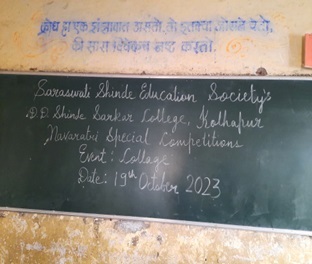 क्रोध हा एक झंझावात असतो, तो इतक्या जोराने येतो,
की सारा विवेकच नष्ट करतो.
Saraswati Shinde Education Society's
D. D. Shinde Sarkar College, Kolhapur
Navaratri Special Competitions
Event: Collage
Date: 19th October 2023